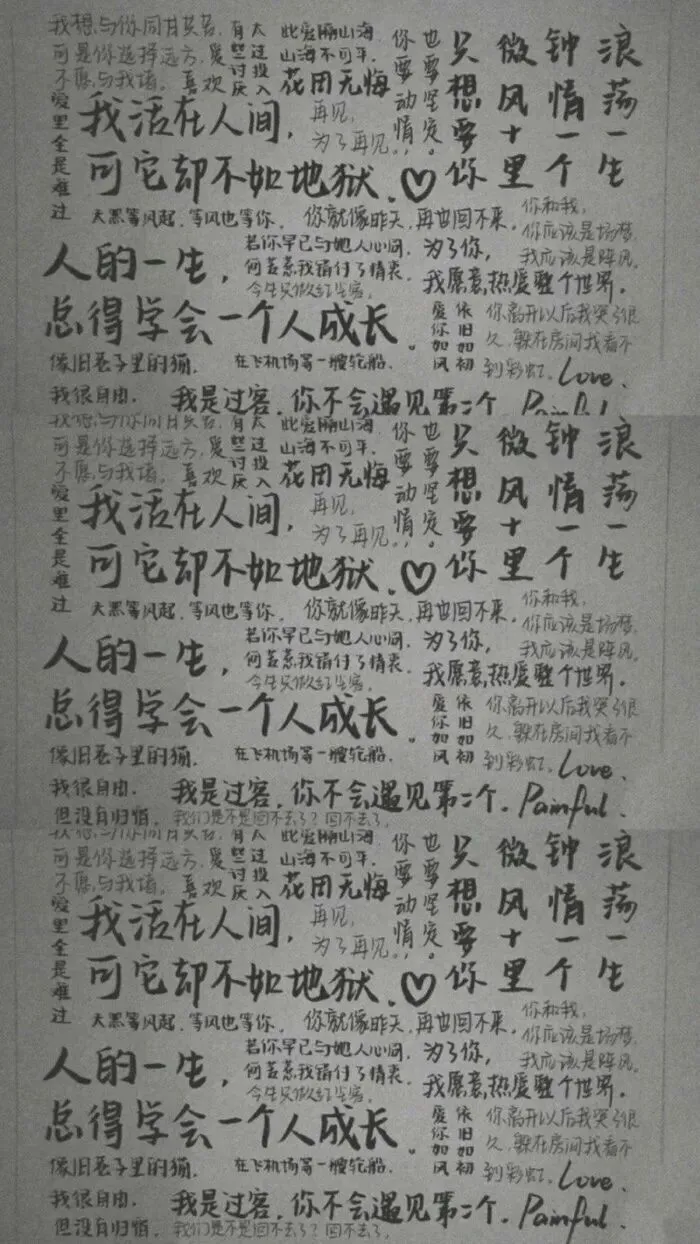 我想与你同甘共苦，
可是你选择远方，爱
不愿与我堵。喜欢
有太
些过
讨投
厌入
此爱隔山海
山海不可平。
花用无悔
再见，
为了再见..
你要动情
也要坚定。
只想要你
微风十里
钟情一个
浪荡一生
爱里全是难过
我活在人间，
可它却不如地狱.♡
大黑等风起，等风也等你，
你就像昨天，再也回不来。
你和我，
你应该是场梦，
我应该是阵风。
人的一生，
总得学会一个人成长。
若你早已与她人心同，
何苦惹我错付了情衷。
今生只做红尘客，
为了你，
我愿意，热爱整个世界。
爱你如风
依旧如初
你离开以后我哭了很
久，躲在房间找看不
到彩虹。Love.
像旧巷子里的猫，
在飞机场等一艘轮船.
我很自由，
我是过客，你不会遇见第二个。Painful.
我想与你同甘共苦，
可是你选择远方，爱
不愿与我堵。喜欢
有太
些过
讨投
厌入
此爱隔山海
山海不可平。
花用无悔
再见，
为了再见..
你要动情
也要坚定。
只想要你
微风十里
钟情一个
浪荡一生
爱里全是难过
我活在人间，
可它却不如地狱.♡
大黑等风起，等风也等你，
你就像昨天，再也回不来。
你和我，
你应该是场梦，
我应该是阵风。
人的一生，
总得学会一个人成长。
若你早已与她人心同，
何苦惹我错付了情衷。
今生只做红尘客，
为了你，
我愿意，热爱整个世界。
爱你如风
依旧如初
你离开以后我哭了很
久，躲在房间找看不
到彩虹。Love.
像旧巷子里的猫，
在飞机场等一艘轮船.
我很自由，
但没有归宿，
我们是不是回不去了？回不去了，
我是过客，你不会遇见第二个。Painful.
我想与你同甘共苦，
可是你选择远方，爱
不愿与我堵。喜欢
有太
些过
讨投
厌入
此爱隔山海
山海不可平。
花用无悔
再见，
为了再见..
你要动情
也要坚定。
只想要你
微风十里
钟情一个
浪荡一生
爱里全是难过
我活在人间，
可它却不如地狱.♡
大黑等风起，等风也等你，
你就像昨天，再也回不来。
你和我，
你应该是场梦，
我应该是阵风。
人的一生，
总得学会一个人成长。
若你早已与她人心同，
何苦惹我错付了情衷。
今生只做红尘客，
为了你，
我愿意，热爱整个世界。
爱你如风
依旧如初
你离开以后我哭了很
久，躲在房间找看不
到彩虹。Love.
像旧巷子里的猫，
在飞机场等一艘轮船.
我很自由，
但没有归宿，
我们是不是回不去了？回不去了，
我是过客，你不会遇见第二个。Painful.